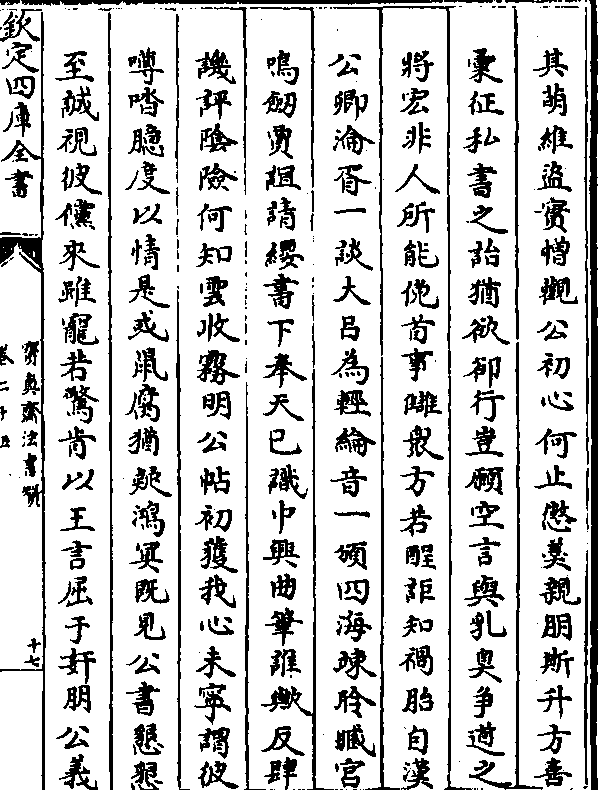 其萌維盜實憎觀公初心何止懲羹親朋斯升方喜
彙征私書之詒猶欲卻行豈願空言與乳奥爭遊之
將宏非人所能俛首事讎衆方若酲詎知禍胎自漢
公卿淪胥一談大吕為輕綸音一頒四海竦聆贓官
鳴劒賈詛請纓書下奉天已識中興曲筆誰歟反肆
譏評陰險何知雲收霧明公帖初獲我心未寧謂彼
噂沓臆度以情是或鼠腐猶疑鴻冥既見公書懇懇
至誠視彼儻來雖寵若驚肯以王言屈于奸朋公義
欽定四庫全書
寳真齋法書贊
卷二十五
十七